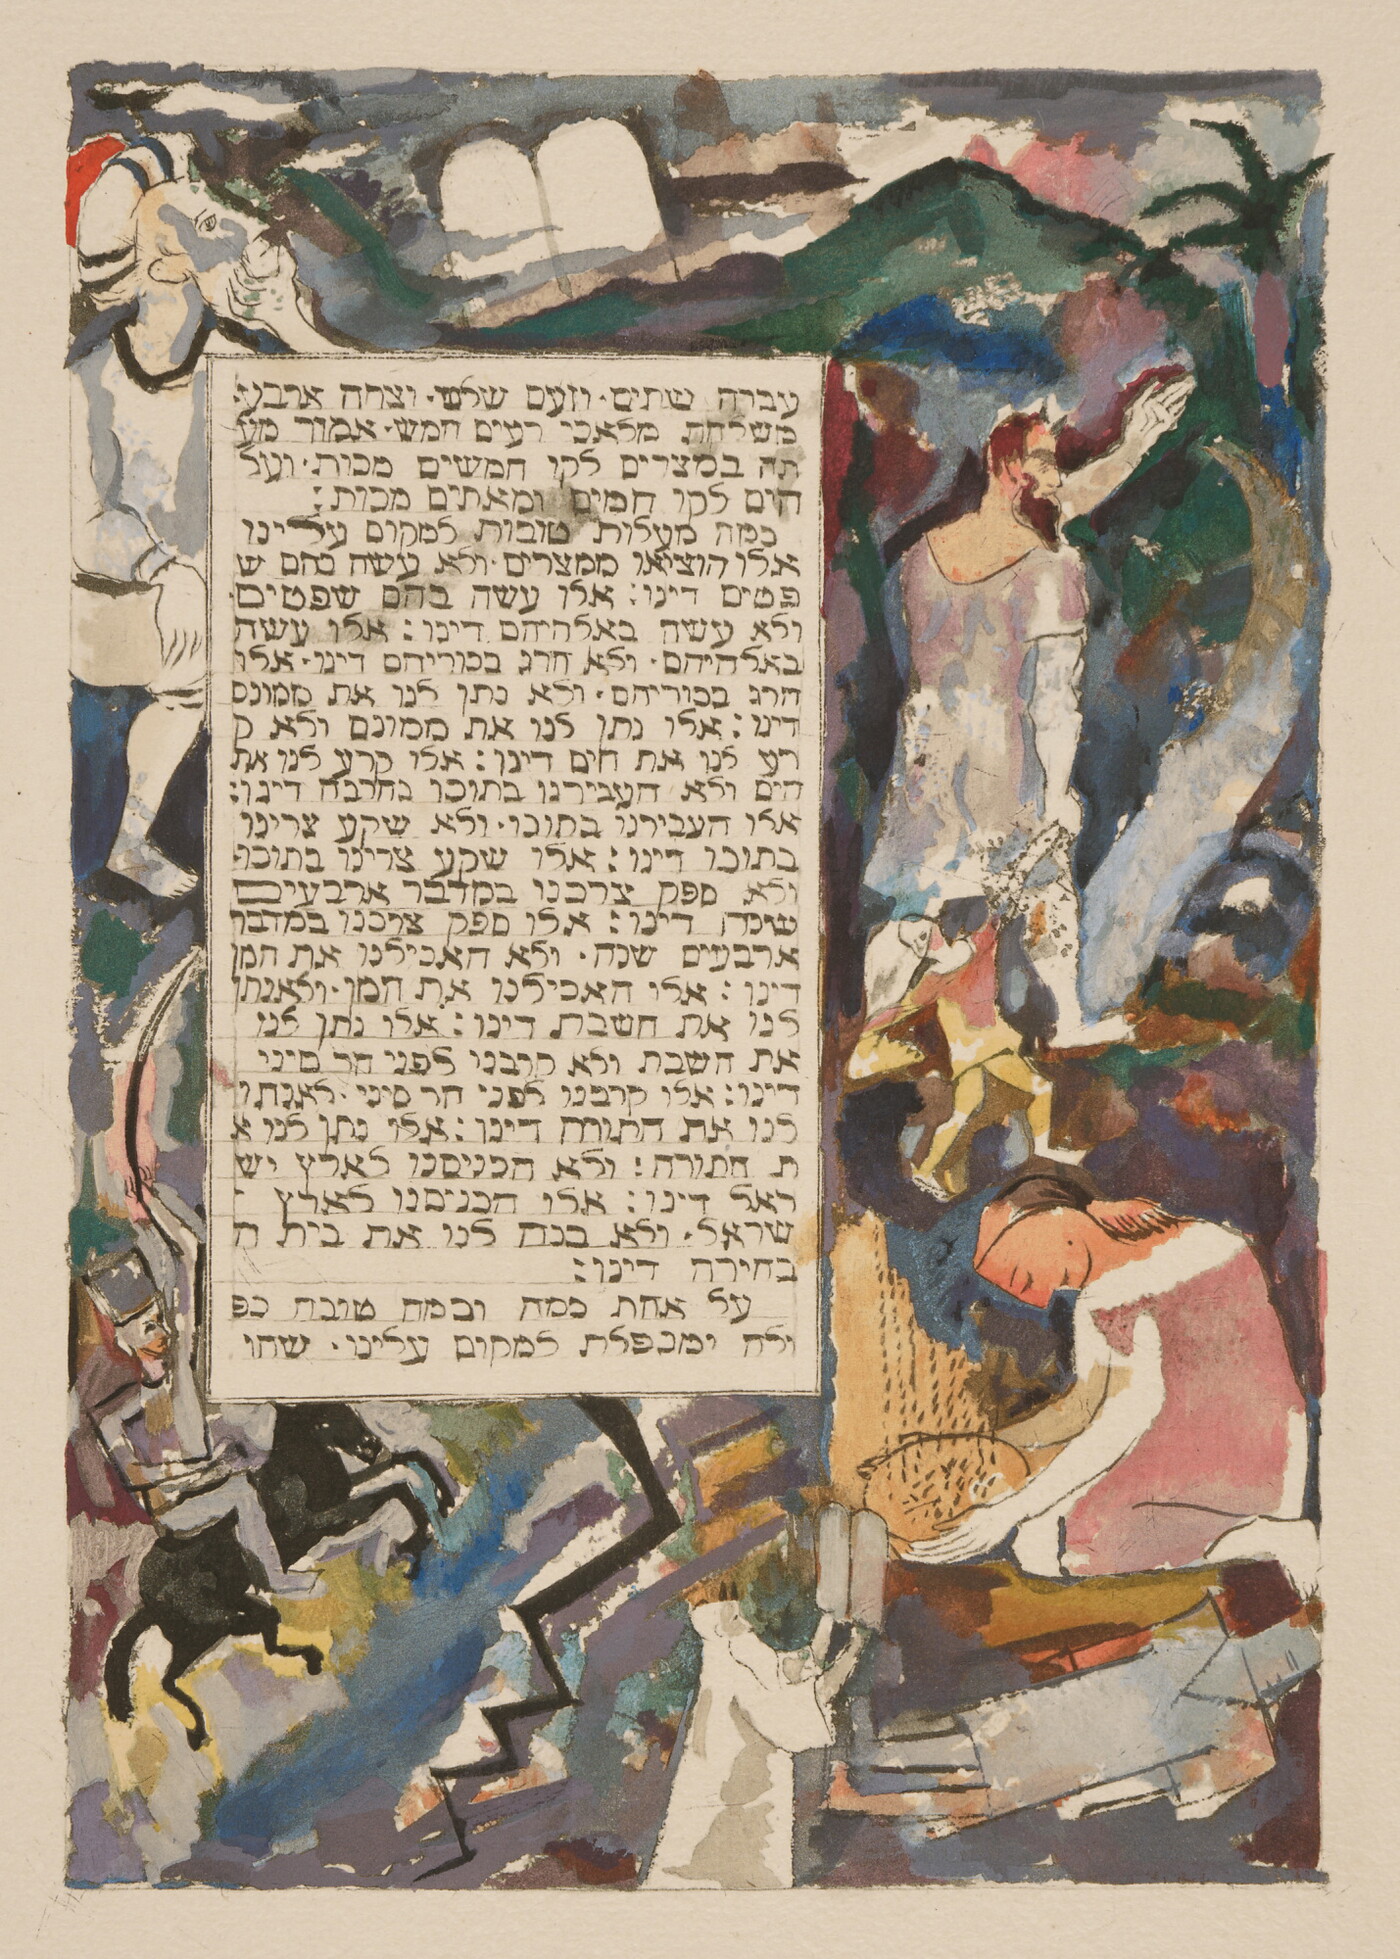 עברה שתים· וזעם שלש· וצרה ארבע·
משלחת מלאכי רעים חמש· אמור מע
תה במצרים לקו חמשים מכות· ועל
הים לקו חמים ומאתים מכות:
כמה מעלות טובות למקום עלינו
אלו הוציאו ממצרים· ולא עשה בהם ש
פטים דינו: אלו עשה בהם שפטים·
ולא עשה באלהיהם דינו: אלו עשה
באלהיהם· ולא הרג בכוריהם דינו· אלו
הרג בכוריהם· ולא נתן לנו את ממונם
דינו: אלו נתן לנו את ממונם ולא ק
רע לנו את הים דינו: אלו קרע לנו את
הים ולא העבירנו בתוכו בחרבה דינו:
אלו העבירנו בתוכו· ולא שקע צרינו
בתוכו דינו: אלו שקע צרינו בתוכו·
ולא ספק צרכנו במדבר ארבעים
שנה דינו: אלו ספק צרכנו במדבר
ארבעים שנה· ולא האכילנו את המן
דינו: אלו האכילנו את המן· ולא נתן
לנו את השבת דינו: אלו נתן לנו
את השבת ולא קרבנו לפני הר סיני
דינו: אלו קרבנו לפני הר סיני· לאנתן
לנו את התורה דינו: אלו נתן לנו א
ת התורה: ולא הכניסנו לארץ יש
ראל דינו: אלו הכניסנו לארץ י
שראל· ולא בנה לנו את בית ה
בחירה דינו:
על אחת כמה וכמה טובה כפ
ולה ומכפלת למקום עלינו· שהו